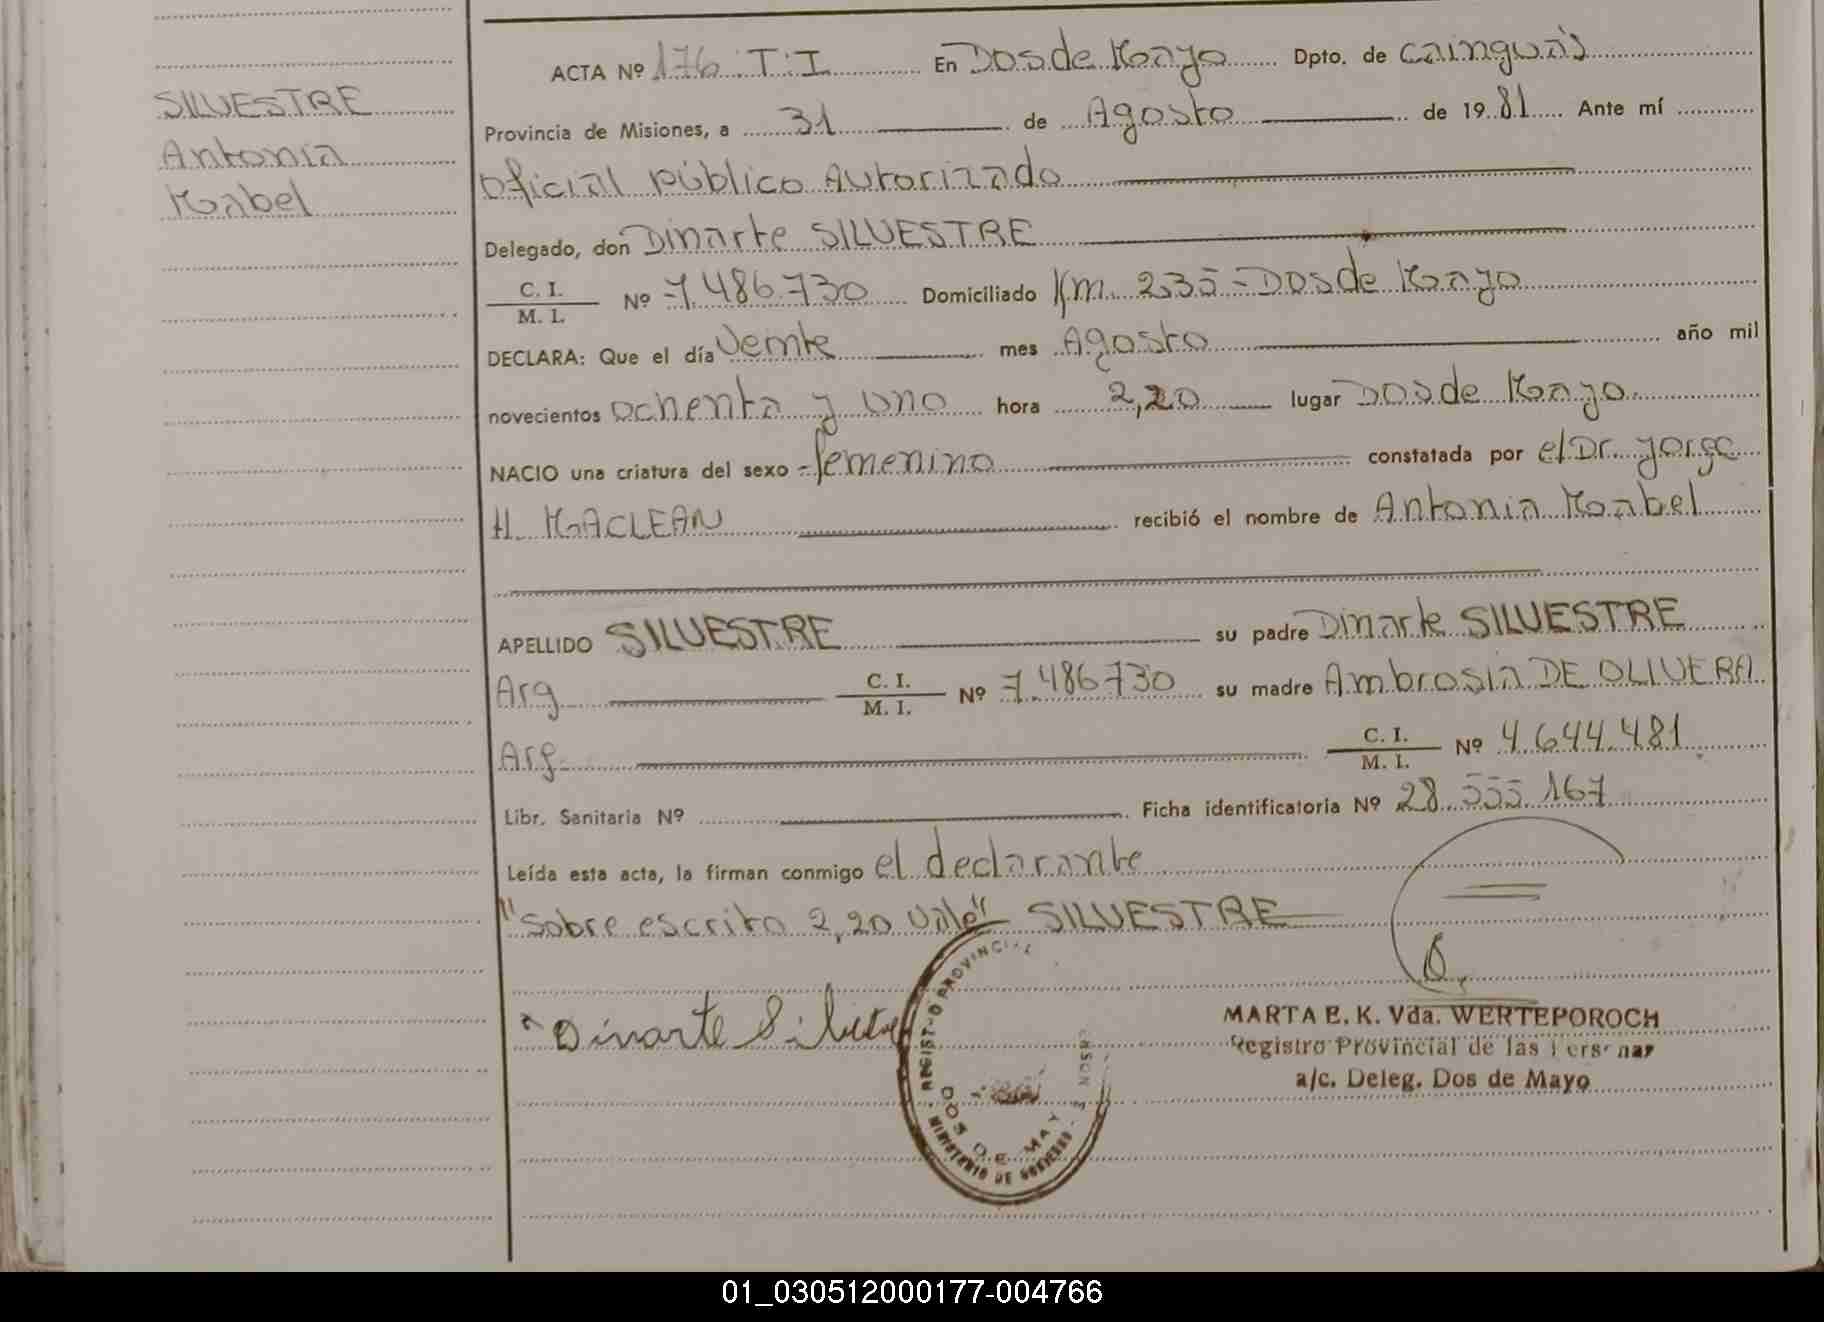 SILVESTRE
Antonia
Mabel
ACTA Nº 176 T: I En Dos de Mayo Dpto. de Cainguás
Provincia de Misiones, a 31 de Agosto de 1981 Ante mí
Oficial público Autorizado
Delegado, don Dinarte SILVESTRE
C. I.
M. I.
Nº 7.486.730 Domiciliado Km. 235 - Dos de Mayo
DECLARA: Que el día Veinte mes Agosto año mil
novecientos ochenta y uno hora 2,20 lugar Dos de Mayo
NACIO una criatura del sexo femenino constatada por el Dr. Jorge
H. MACLEAN recibió el nombre de Antonia Mabel
APELLIDO SILVESTRE su padre Dinarte SILVESTRE
Arg C. I.
M. I. Nº 7.486.730 su madre Ambrosia DE OLIVERA
Arg. C. I.
M. I. Nº 4.644.481
Libr. Sanitaria Nº Ficha identificatoria Nº 28.555.167
Leída esta acta, la firman conmigo el declarante
"Sobre escrito 2,20 Vale" SILVESTRE
Dinarte Silvestre
REGISTRO PROVINCIAL
DOS DE MAYO
MINISTERIO DE GOBIERNO
MARTA E. K. Vda. WERTEPOROCH
Registro Provincial de las Personas
a/c. Deleg. Dos de Mayo
01_030512000177-004766